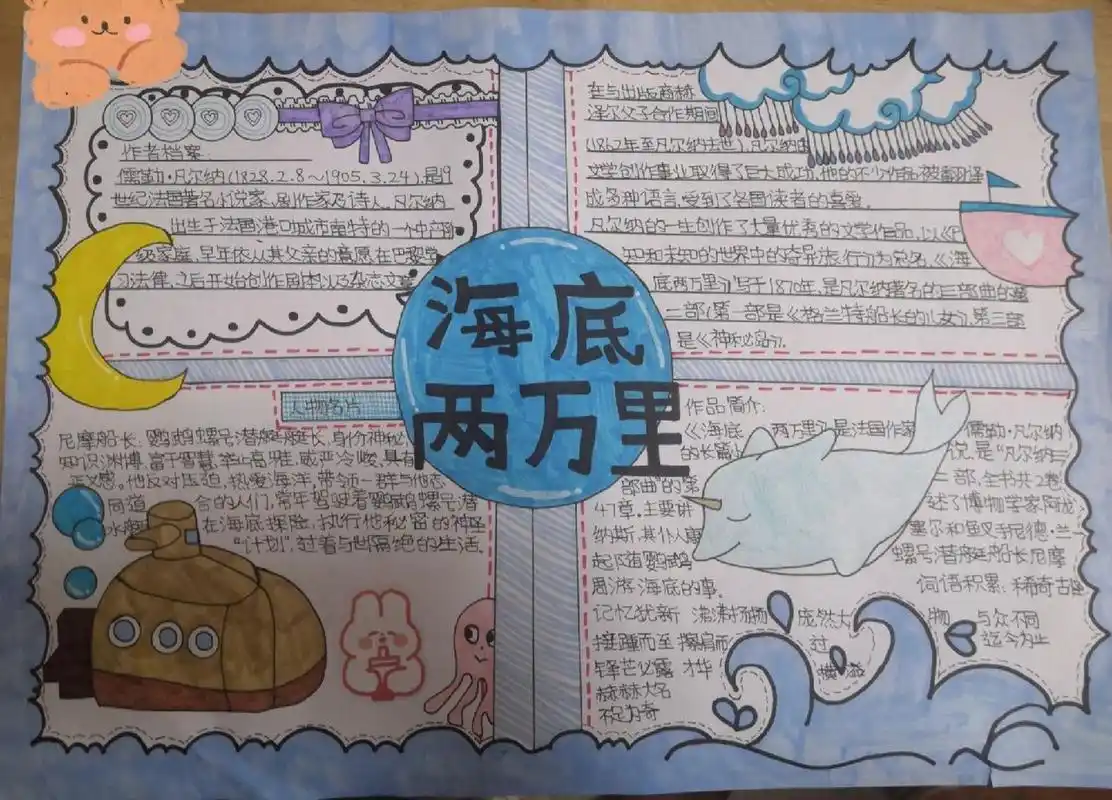 海底
两万里
作者档案
儒勒·凡尔纳(1828.2.8~1905.3.24),是19
世纪法国著名小说家、剧作家及诗人。凡尔纳
出生于法国港口城市南特的一个中产阶
级家庭,早年依从其父亲的意愿在巴黎学
习法律,之后开始创作剧本以及杂志文章
在与出版商赫
泽尔父子合作期间
(1862年至凡尔纳去世),凡尔纳的
文学创作事业取得了巨大成功,他的不少作品被翻译
成多种语言,受到了各国读者的喜爱。
凡尔纳的一生创作了大量优秀的文学作品,以《
已知和未知的世界中的奇异旅行》为总名,《海
底两万里》写于1870年,是凡尔纳著名的三部曲的第
二部(第一部是《格兰特船长的儿女》,第三部
是《神秘岛》)。
人物名片
尼摩船长,鹦鹉螺号潜艇艇长,身份神秘
知识渊博,富于智慧,举止高雅,威严冷峻,具有
正义感。他反对压迫,热爱海洋,带领一群与他志
同道合的人们,常年驾驶着鹦鹉螺号潜
水艇在海底探险,执行他秘密的神圣
“计划”,过着与世隔绝的生活。
作品简介:
《海底两万里》是法国作家儒勒·凡尔纳
的长篇小说,是“凡尔纳三
部曲”的第二部,全书共2卷
47章。主要讲述了博物学家阿龙
纳斯,其仆人康塞尔和鱼叉手尼德·兰一
起随鹦鹉螺号潜艇船长尼摩
周游海底的事。
词语积累:稀奇古怪
记忆犹新 庞然大物 与众不同
接踵而至 擦肩而过 迄今为止
锋芒必露 才华横溢
赫赫大名
不足为奇